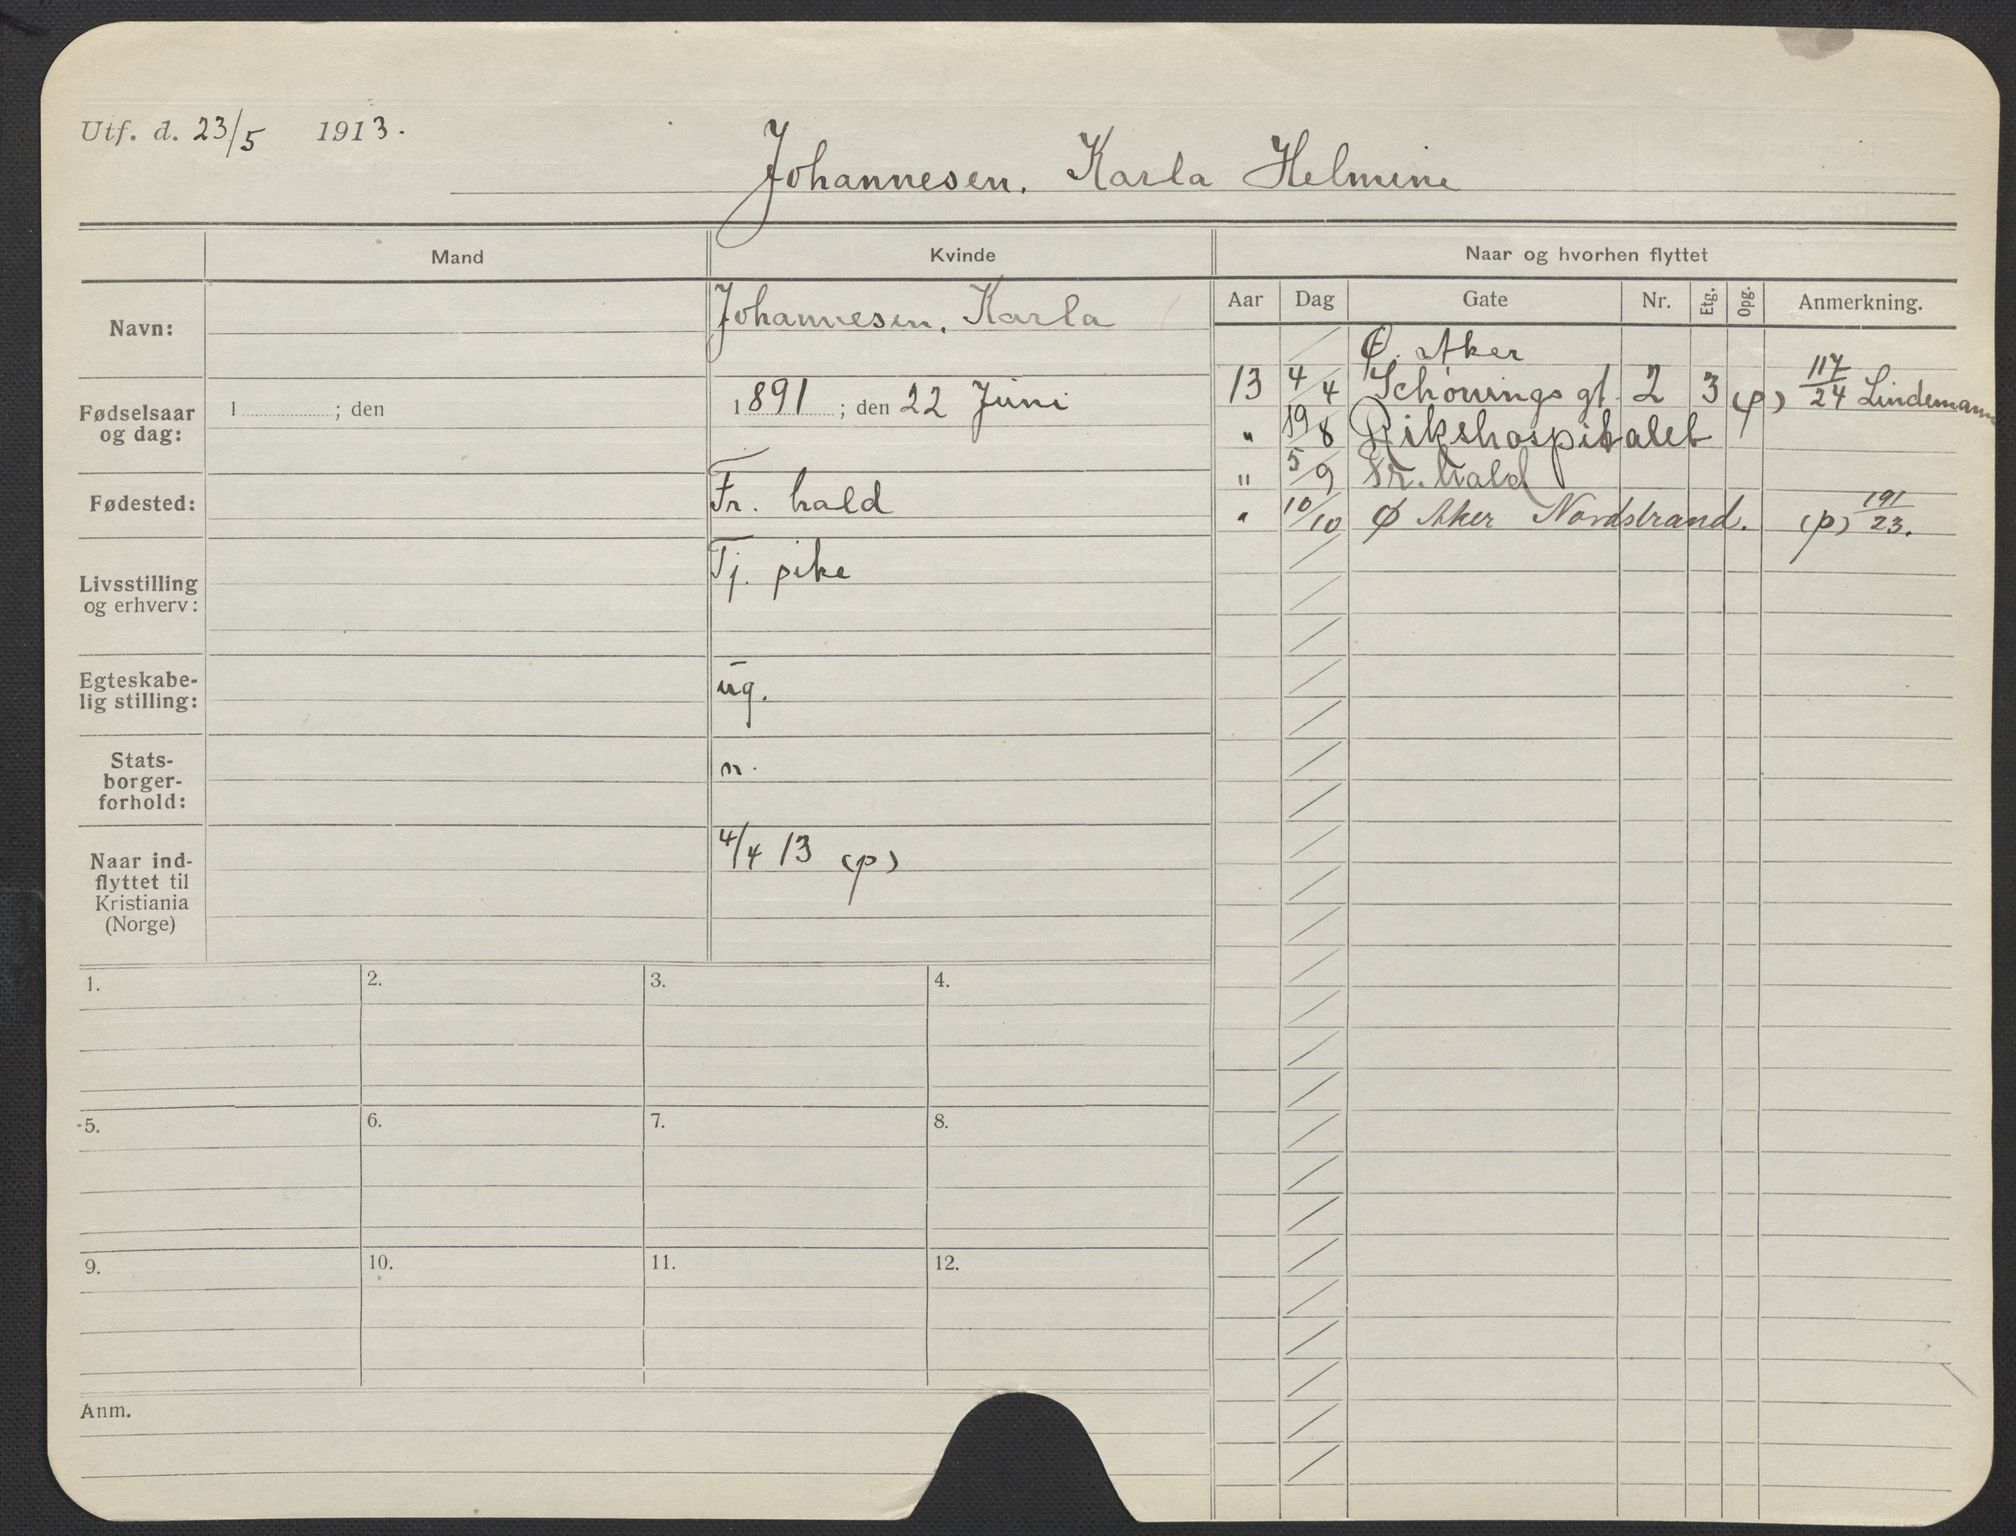 Utf. d. 23/5 1913.
Johannesen. Karla Helmine
Mand
Kvinde
Naar og hvorhen flyttet
Navn:
Johannesen. Karla
Aar Dag Gate Nr. Etg. Opg. Anmerkning.
Ø. Aker
13 4/4 Schønings gt. 2 3 (p) 117/24 Lindemann
" 19/8 Rikshospitalet
" 5/9 Fr. hald
" 10/10 Ø Aker Nordstrand. (p) 191/23.
Fødselsaar
og dag:
1 ; den
1891 ; den 22 Juni
Fødested:
Fr. hald
Livsstilling
og erhverv:
Tj. pike
Egteskabe-
lig stilling:
ug.
Stats-
borger-
forhold:
n.
Naar ind-
flyttet til
Kristiania
(Norge)
4/4 13 (p)
1. 2. 3. 4.
5. 6. 7. 8.
9. 10. 11. 12.
Anm.